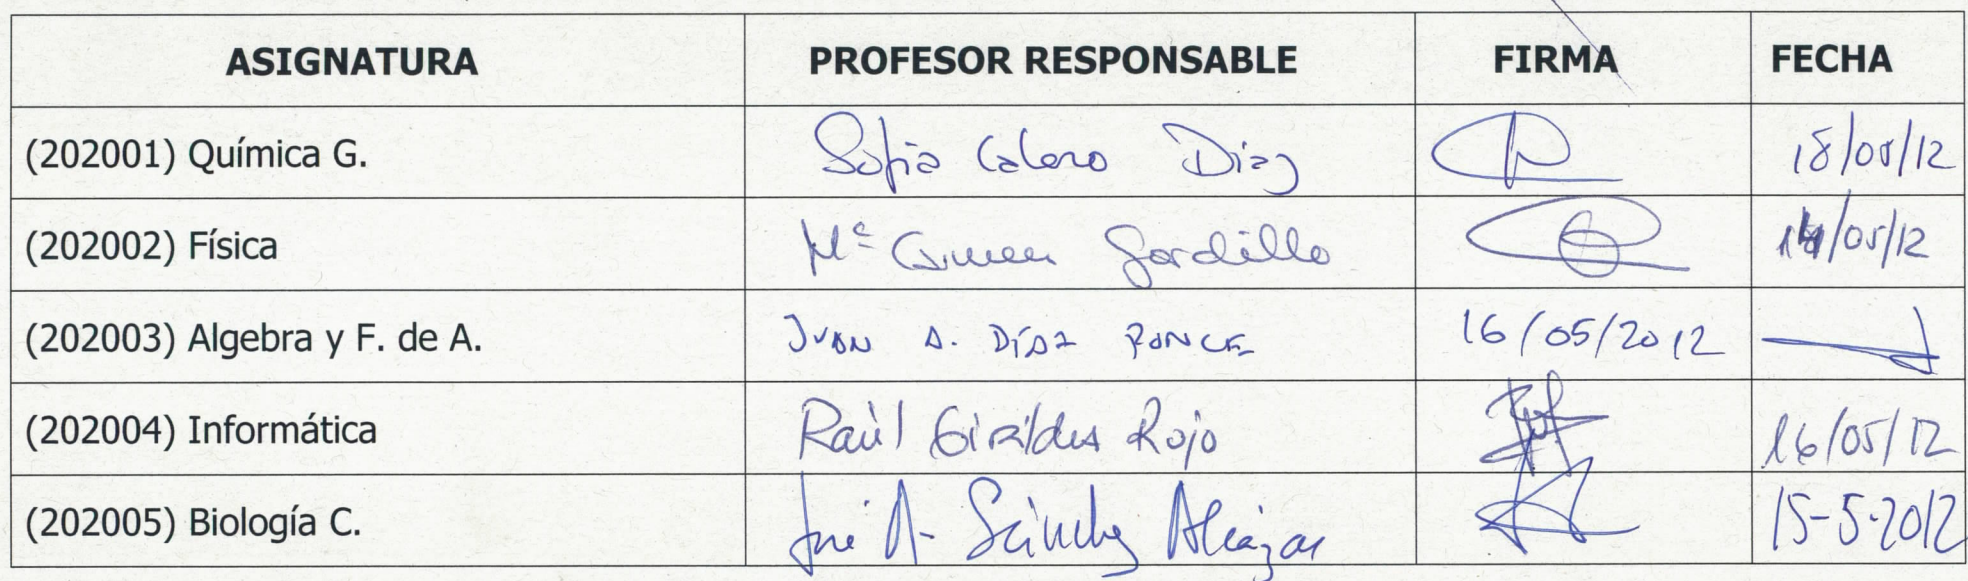 ASIGNATURA PROFESOR RESPONSABLE FIRMA FECHA
(202001) Química G. Sofia Calero Diaz 18/05/12
(202002) Física Mª Carmen Gordillo /05/12
(202003) Algebra y F. de A. JUAN A. DÍAZ PONCE 16/05/2012
(202004) Informática Raúl Giráldez Rojo 16/05/12
(202005) Biología C. José A. Sánchez Alcázar 15-5-2012